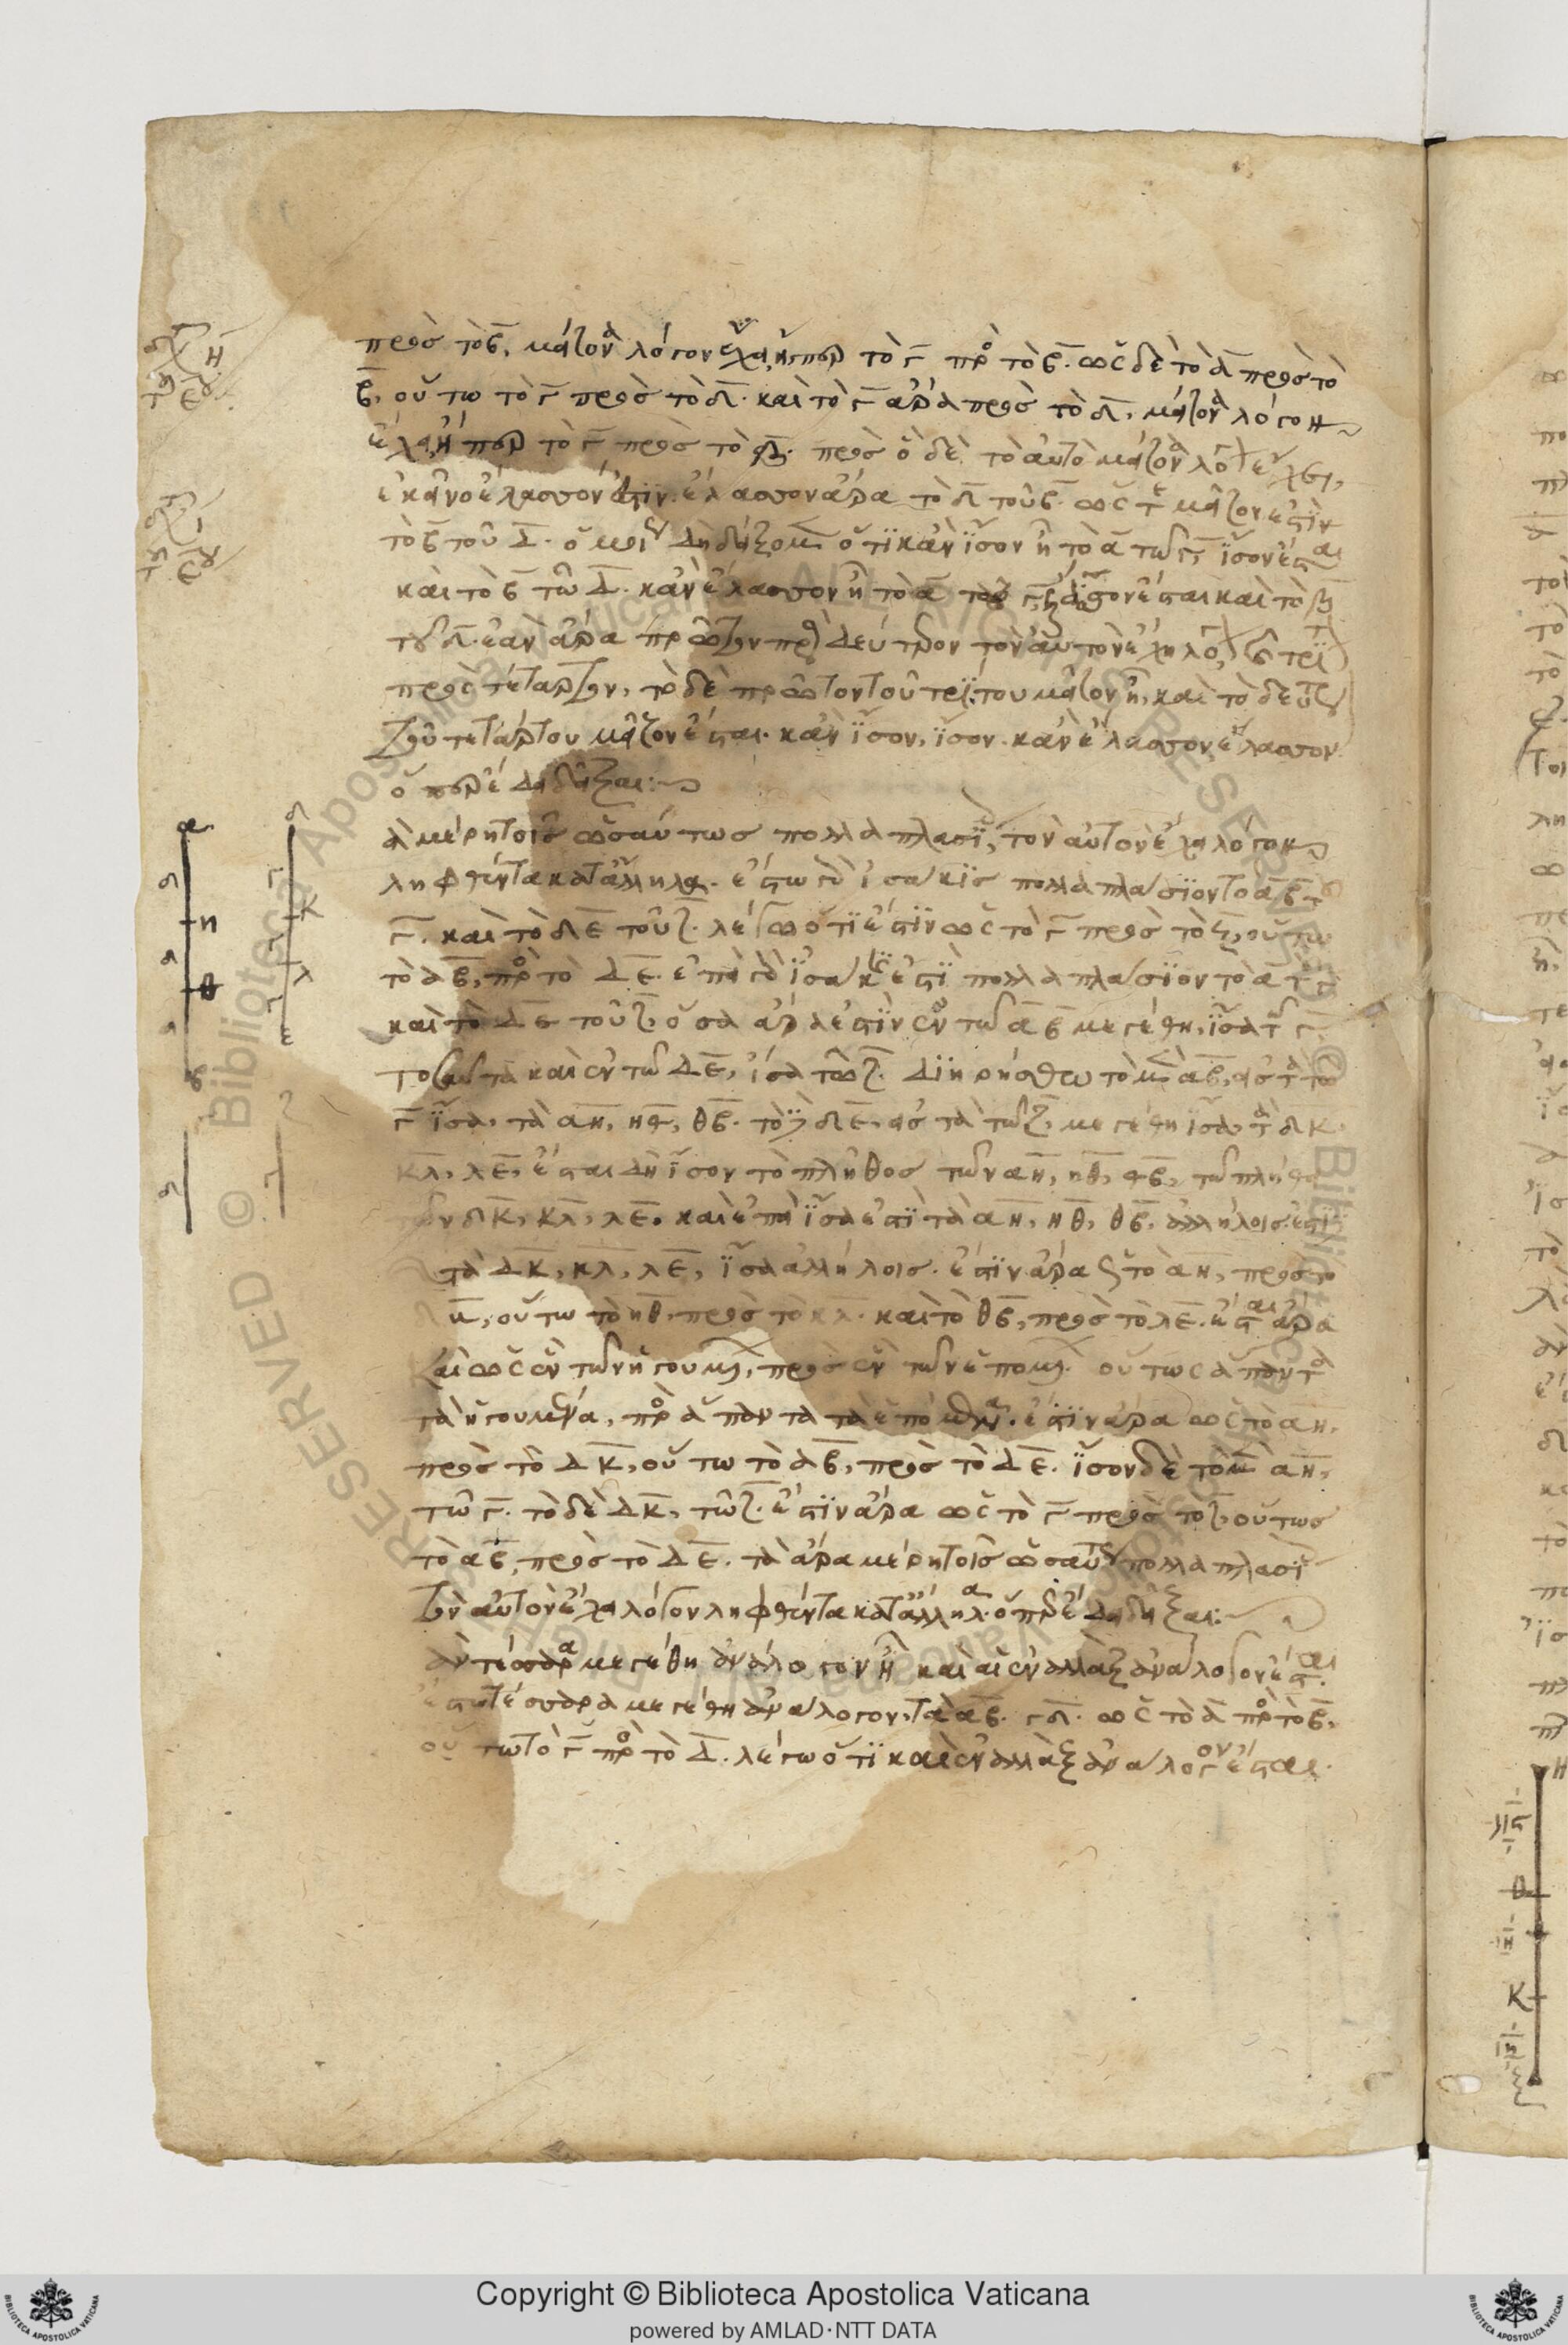 πρὸς τὸ β̅, μείζονα λόγον ἔχει ἤπερ τὸ γ̅ πρὸς τὸ β̅. ὡς δὲ τὸ α̅ πρὸς τὸ
β̅, οὕτω τὸ γ̅ πρὸς τὸ δ̅. καὶ τὸ γ̅ ἄρα πρὸς τὸ δ̅, μείζονα λόγον
ἔχει ἤπερ τὸ γ̅ πρὸς τὸ β̅. πρὸς ὃ δὲ τὸ αὐτὸ μείζονα λόγον ἔχει,
ἐκεῖνο ἔλασσόν ἐστιν. ἔλασσον ἄρα τὸ δ̅ τοῦ β̅. ὥστε μεῖζον ἐστὶν
τὸ β̅ τοῦ δ̅. ὁμοίως δὴ δείξομεν ὅτι κἂν ἴσον ἦ τὸ α̅ τῶ γ̅, ἴσον ἔσται
καὶ τὸ β̅ τῶ δ̅. κἂν ἔλασσον ἦ τὸ α̅ τοῦ γ̅, ἔλασσον ἔσται καὶ τὸ β̅
τοῦ δ̅. ἐὰν ἄρα πρῶτον πρὸς δεύτερον τὸν αὐτὸν ἔχη λόγον καὶ τρίτον
πρὸς τέταρτον, τὸ δὲ πρῶτον τοῦ τρίτου μεῖζον ἦ, καὶ τὸ δεύτερον
τοῦ τετάρτου μεῖζον ἔσται. κἂν ἴσον, ἴσον. κἂν ἔλασσον, ἔλασσον
ὅπερ ἔδει δεῖξαι:
τὰ μέρη τοῖς ὡσαύτως πολλαπλασίοις, τὸν αὐτὸν ἔχει λόγον
ληφθέντα κατάλληλα. ἔστω γὰρ ἰσάκις πολλαπλάσιον τὸ α̅β̅ τοῦ
γ̅. καὶ τὸ δ̅ε̅ τοῦ ζ̅. λέγω ὅτι ἐστὶν ὡς τὸ γ̅ πρὸς τὸ ζ̅, οὕτω
τὸ α̅β̅, πρὸς τὸ δ̅ε̅. ἐπεὶ γὰρ ἰσάκις ἐστὶ πολλαπλάσιον τὸ α̅β̅ τοῦ γ̅
καὶ τὸ δ̅ε̅ τοῦ ζ̅, ὅσα ἄρα ἐστὶν ἐν τῶ α̅β̅ μεγέθη, ἴσα τῶ γ̅
τοσαῦτα καὶ ἐν τῶ δ̅ε̅, ἴσα τῶ ζ̅. διηρήσθω τὸ μὲν α̅β̅, εἰς τὰ τῶ
γ̅ ἴσα, τὰ α̅η̅, η̅θ̅, θ̅β̅. τὸ δὲ δ̅ε̅, εἰς τὰ τῶ ζ̅, μεγέθη ἴσα, τὰ δ̅κ̅,
κ̅λ̅, λ̅ε̅, ἔσται δὴ ἴσον τὸ πλῆθος τῶν α̅η̅, η̅θ̅, θ̅β̅, τῶ πλήθει
τῶν δ̅κ̅, κ̅λ̅, λ̅ε̅. καὶ ἐπεὶ ἴσα ἐστὶ τὰ α̅η̅, η̅θ̅, θ̅β̅, ἀλλήλοις. ἐστὶ
τὰ δ̅κ̅, κ̅λ̅, λ̅ε̅, ἴσα ἀλλήλοις. ἔστιν ἄρα ὡς τὸ α̅η̅, πρὸς τὸ
δ̅κ̅, οὕτω τὸ η̅θ̅, πρὸς τὸ κ̅λ̅. καὶ τὸ θ̅β̅, πρὸς τὸ λ̅ε̅. ἔσται ἄρα
καὶ ὡς ἓν τῶν ἡγουμένων, πρὸς ἓν τῶν ἑπομένων. οὕτως ἅπαντα
τὰ ἡγούμενα, πρὸς ἅπαντα τὰ ἑπόμενα. ἔστιν ἄρα ὡς τὸ α̅η̅,
πρὸς τὸ δ̅κ̅, οὕτω τὸ α̅β̅, πρὸς τὸ δ̅ε̅. ἴσον δὲ τὸ μὲν α̅η̅,
τῶ γ̅. τὸ δὲ δ̅κ̅, τῶ ζ̅. ἔστιν ἄρα ὡς τὸ γ̅ πρὸς τὸ ζ̅, οὕτως
τὸ α̅β̅, πρὸς τὸ δ̅ε̅. τὰ ἄρα μέρη τοῖς ὡσαύτως πολλαπλασίοις
τὸν αὐτὸν ἔχει λόγον ληφθέντα κατάλληλα. ὅπερ ἔδει δεῖξαι:
ἐὰν τέσσαρα μεγέθη ἀνάλογον ἦ καὶ ἐναλλὰξ ἀνάλογον ἔσται.
ἔστω τέσσαρα μεγέθη ἀνάλογον, τὰ α̅β̅. γ̅δ̅. ὡς τὸ α̅ πρὸς τὸ β̅,
οὕτω τὸ γ̅ πρὸς τὸ δ̅. λέγω ὅτι καὶ ἐναλλὰξ ἀνάλογον ἔσται.
Copyright © Biblioteca Apostolica Vaticana
powered by AMLAD·NTT DATA